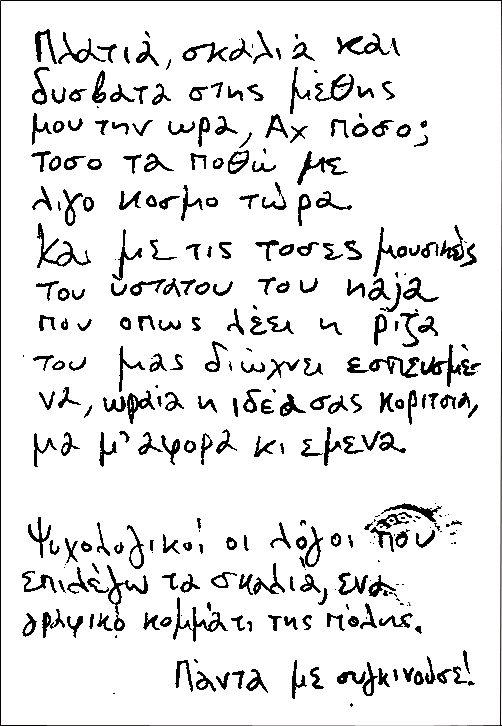 Πλατιά, σκαλιά και
δυσβατα στης μέθης
μου την ωρα, Αχ πόσο;
τοσο τα ποθώ με
λιγο κοσμο τώρα.
Και με τις τοσες μουσικές
του ύστατου του καja
που οπως λέει η ρίζα
του μας διώχνει εσπευσμέ-
να, ωραία η ιδέα σας κορίτσια,
μα μ' αφορα κι εμενα.
Ψυχολογικοί οι λόγοι που
επιλέγω τα σκαλιά, ενα
γραφικό κομμάτι της πόλης.
Πάντα με συγκινούσε!